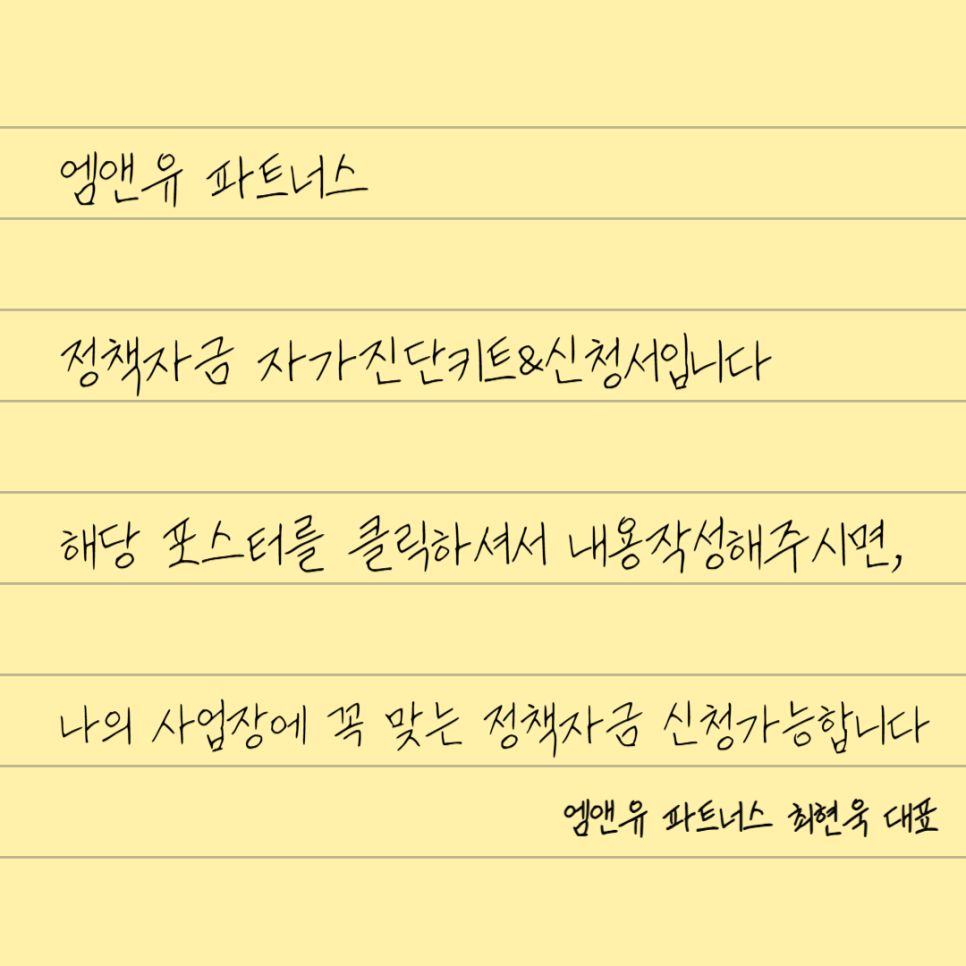 엠앤유 파트너스
정책자금 자가진단키트&신청서입니다
해당 포스터를 클릭하셔서 내용작성해주시면,
나의 사업장에 꼭 맞는 정책자금 신청가능합니다
엠앤유 파트너스 최현욱 대표